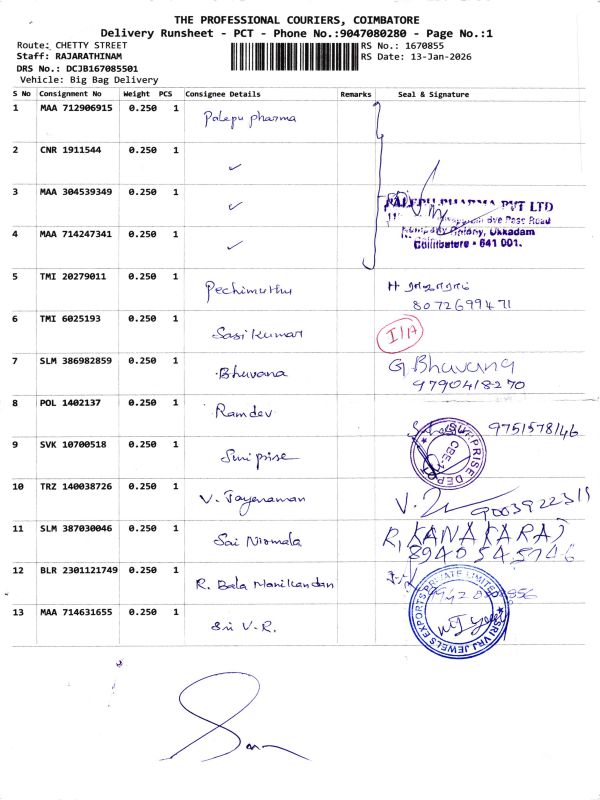 THE PROFESSIONAL COURIERS, COIMBATORE
Delivery Runsheet - PCT - Phone No.:9047080280 - Page No.:1
Route: CHETTY STREET
RS No.: 1670855
Staff: RAJARATHINAM
RS Date: 13-Jan-2026
DRS No.: DCJB167085501
Vehicle: Big Bag Delivery
S No Consignment No Weight PCS Consignee Details Remarks Seal & Signature
1 MAA 712906915 0.250 1 Palepu pharma
2 CNR 1911544 0.250 1 ✓
3 MAA 304539349 0.250 1 ✓
PHARMA PVT LTD
Bye Pass Road
4 MAA 714247341 0.250 1 ✓
Colony, Ukkadam
Coimbatore - 641 001.
5 TMI 20279011 0.250 1 Pechimuthu
8072699471
6 TMI 6025193 0.250 1 Sasi kumar I/A
7 SLM 386982859 0.250 1 Bhuvana G Bhuvana
9790418270
8 POL 1402137 0.250 1 Ramdev
9751578146
9 SVK 10700518 0.250 1 Suniprise
SUNPRISE DEPOT
CBE-1
10 TRZ 140038726 0.250 1 V. Jayenaman V.
9003922311
11 SLM 387030046 0.250 1 Sai Nirmala R. KANAKARAJ
8940545746
12 BLR 2301121749 0.250 1 R. Bala Manikandan
13 MAA 714631655 0.250 1 Sri V.R.
SRI VRJ JEWELS EXPORTS PRIVATE LIMITED